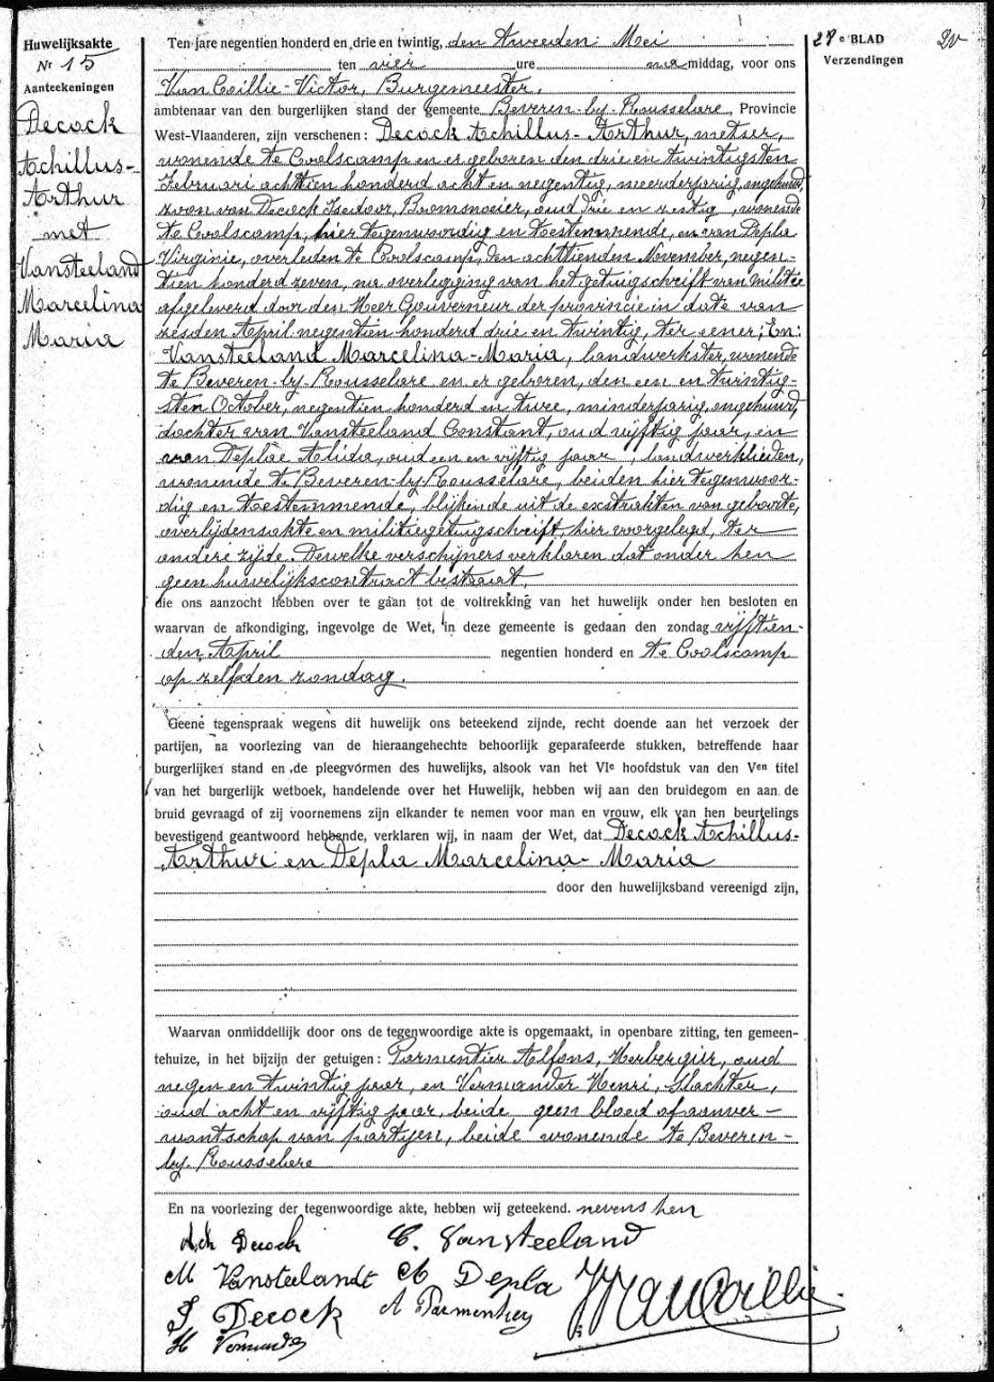 Huwelijksakte
Nr 15
Aanteekeningen
Decock
Achillus-
Arthur
met
Vansteeland
Marcelina
Maria
27e BLAD
Verzendingen
Ten jare negentien honderd en drie en twintig, den tweeden Mei
ten vier ure na middag, voor ons
Van Coillie-Victor, Burgemeester,
ambtenaar van den burgerlijken stand der gemeente Beveren-by-Rousselare, Provincie
West-Vlaanderen, zijn verschenen: Decock Achillus-Arthur, metser,
wonende te Coolscamp en er geboren den drie en twintigsten
Februari achttien honderd acht en negentig, meerderjarig, ongehuwd,
zoon van Decock Isedoor, Boomsnoeier, oud drie en zestig, wonende
te Coolscamp, hier tegenwoordig en toestemmende, en van Depla
Virginie, overleden te Coolscamp, den achttienden November, negen-
tien honderd zeven, na overlegging van het getuigschrift van militie
afgeleverd door den Heer Gouverneur der provincie in date van
zesden April negentien honderd drie en twintig, ter eener; En:
Vansteeland Marcelina-Maria, landwerkster, wonende
te Beveren-by-Rousselare en er geboren, den een en twintig-
sten October, negentien honderd en twee, minderjarig, ongehuwd,
dochter van Vansteeland Constant, oud vijftig jaar, en
van Deplae Aluda, oud een en vijftig jaar, landwerklieden,
wonende te Beveren-by-Rousselare, beiden hier tegenwoor-
dig en toestemmende, blijkende uit de exstrakten van geboorte,
overlijdensakte en militiegetuigschrift, hier voorgelegd, ter
andere zijde. Dewelke verschijners verklaren dat onder hen
geen huwelijkscontract bestaat,
die ons aanzocht hebben over te gaan tot de voltrekking van het huwelijk onder hen besloten en
waarvan de afkondiging, ingevolge de Wet, in deze gemeente is gedaan den zondag vijftien-
den April negentien honderd en te Coolscamp
op zelfden zondag.
Geene tegenspraak wegens dit huwelijk ons beteekend zijnde, recht doende aan het verzoek der
partijen, na voorlezing van de hieraangehechte behoorlijk geparafeerde stukken, betreffende haar
burgerlijken stand en de pleegvormen des huwelijks, alsook van het VIe hoofdstuk van den Ven titel
van het burgerlijk wetboek, handelende over het Huwelijk, hebben wij aan den bruidegom en aan de
bruid gevraagd of zij voornemens zijn elkander te nemen voor man en vrouw, elk van hen beurtelings
bevestigend geantwoord hebbende, verklaren wij, in naam der Wet, dat Decock Achillus-
Arthur en Depla Marcelina-Maria
door den huwelijksband vereenigd zijn,
Waarvan onmiddellijk door ons de tegenwoordige akte is opgemaakt, in openbare zitting, ten gemeen-
tehuize, in het bijzijn der getuigen: Parmentier Alfons, Herbergier, oud
negen en twintig jaar, en Vermander Henri, Slachter,
oud acht en vijftig jaar, beide geen bloed of aanver-
wantschap van partijen, beide wonende te Beveren-
by-Rousselare
En na voorlezing der tegenwoordige akte, hebben wij geteekend. nevens hen
Ach Decock C. Vansteeland
M Vansteelandt A Depla
J Decock A Parmentier
H Vermander VanCoillie